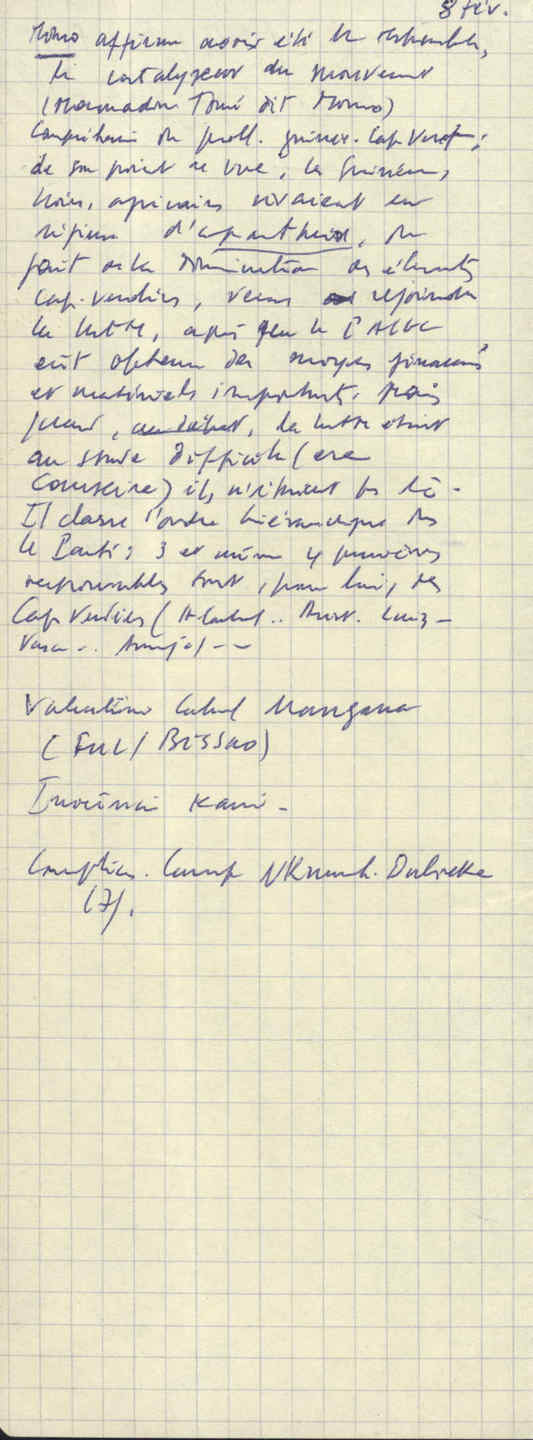 8 fév.
Momo affirme avoir été le responsable,
le catalyseur du mouvement
(Mamadou Touré dit Momo)
Compréhension du probl. guinée. Cap Vert ;
de son point de vue, les Guinéens,
Noirs, africains vivaient en
régime d'apartheid, du
fait de la domination des éléments
cap-verdiens, venus rejoindre
la lutte, après que le PAIGC
eût obtenu des moyens financiers
et matériels importants. Mais
quand, au début, la lutte était
au stade difficile (ere
Conakry) ils n'étaient pas là.
Il classe l'ordre hiérarchique ds
le Parti : 3 et même 4 premiers
responsables sont, pour lui, des
Cap Verdiens (A. Cabral .. Arist. Luiz -
Vasco .. Araujo) --
Valentino Cabral Mangana
(FUL / BISSAO)
Inocência Kani -
Camp NKrumah. Dubreka
(7).